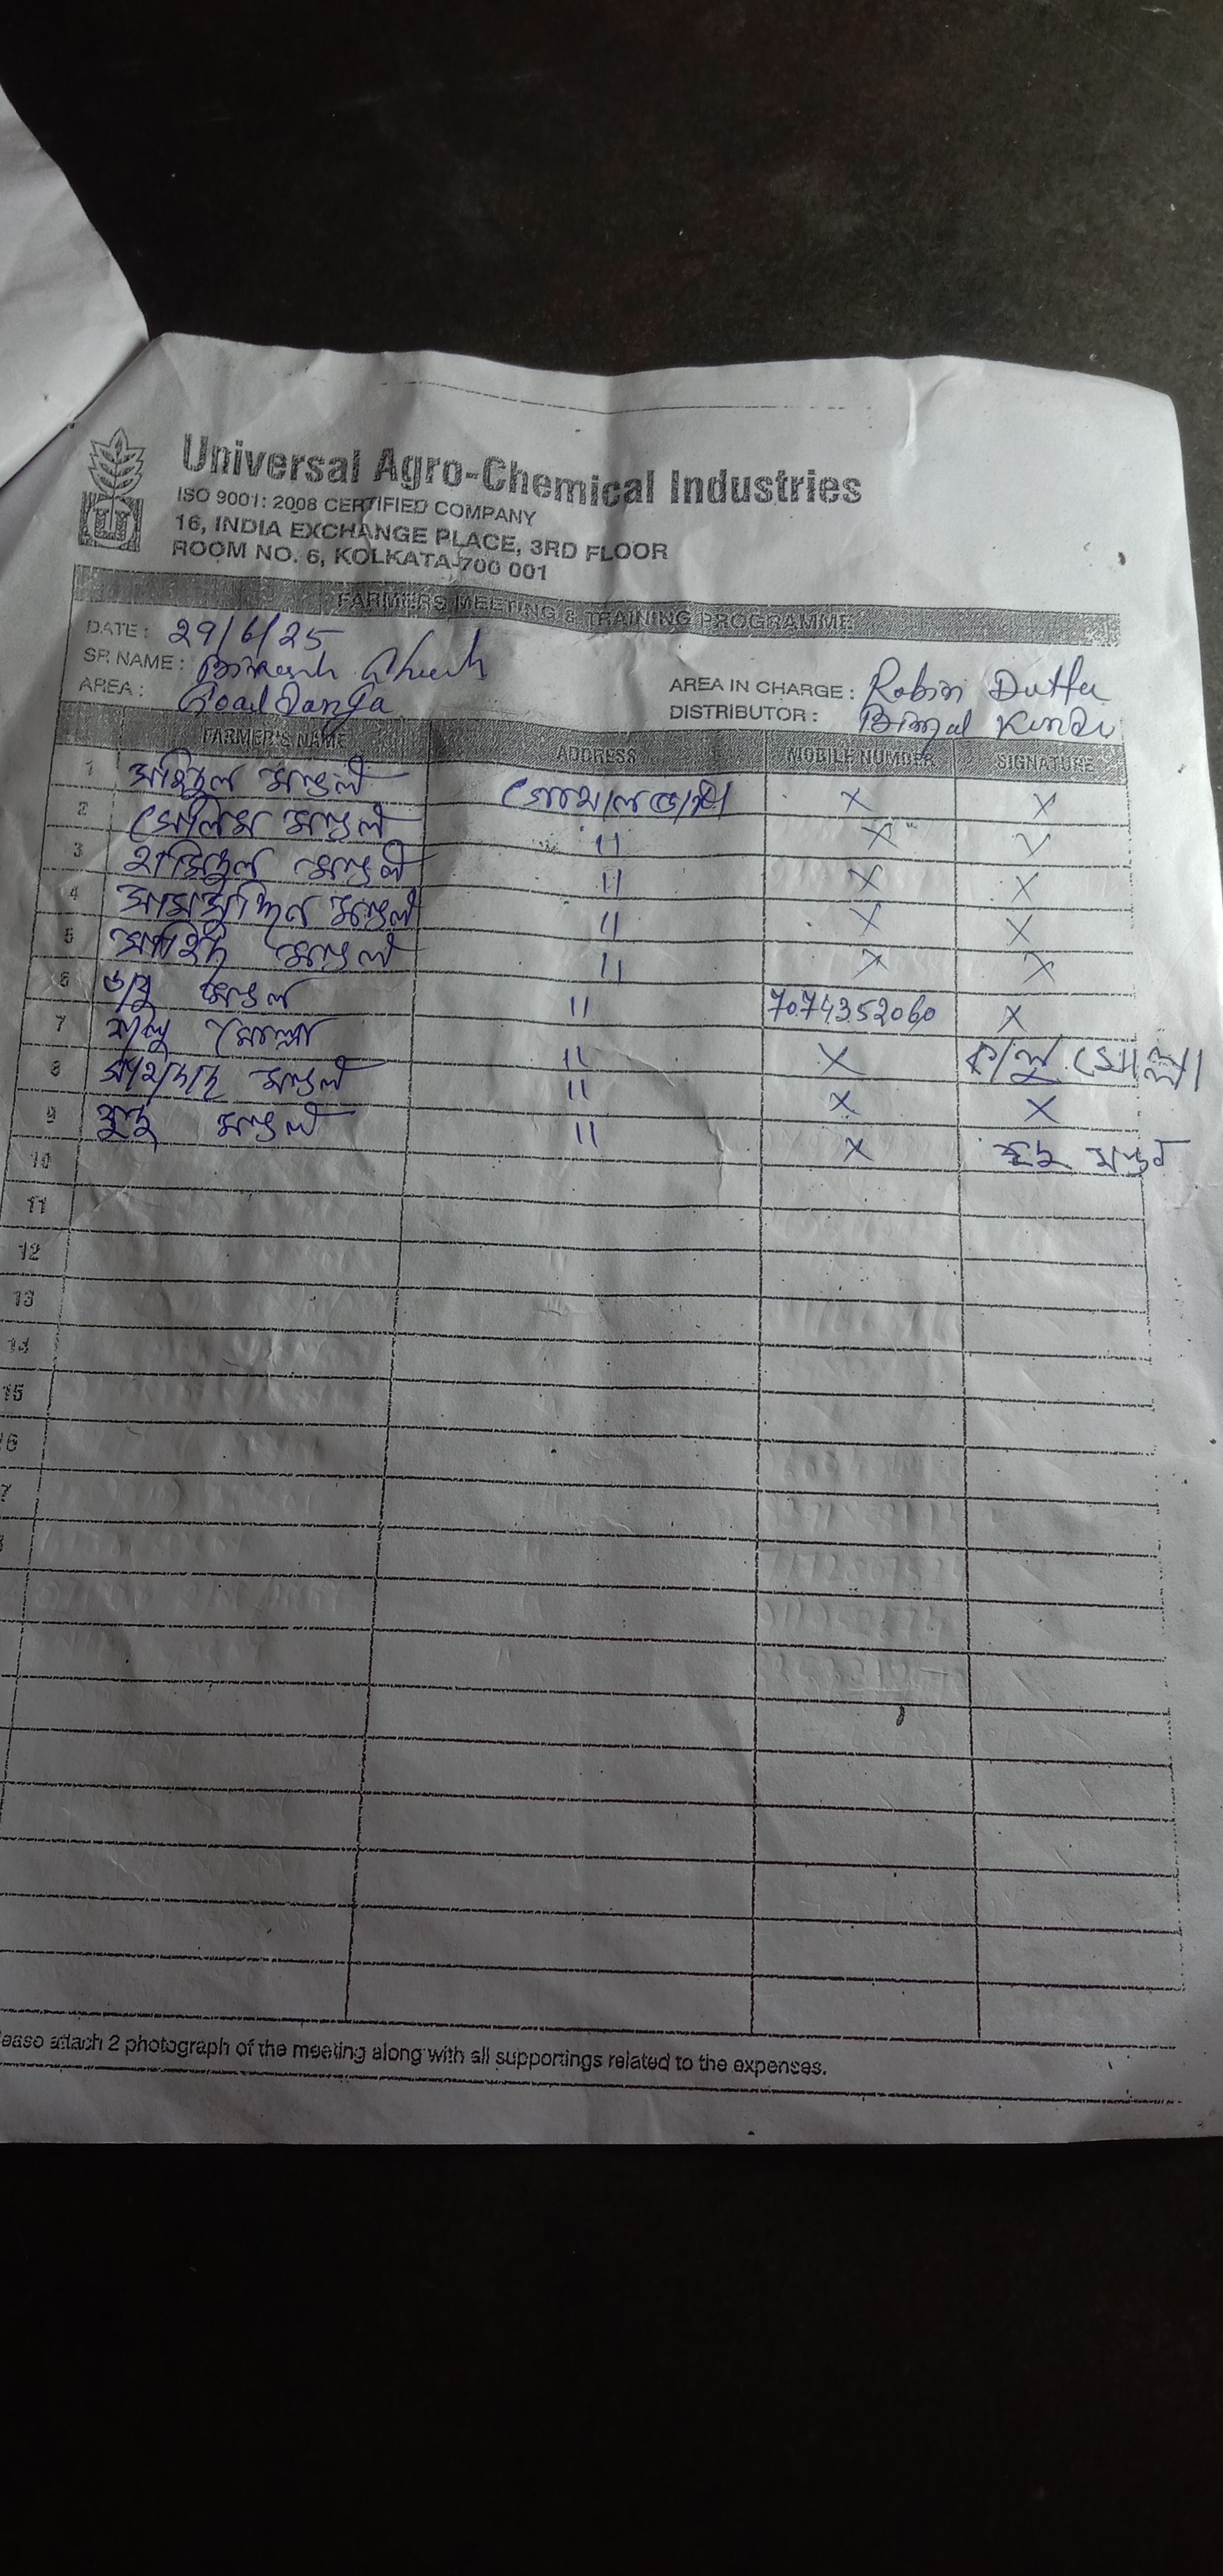 Universal Agro-Chemical Industries
ISO 9001: 2008 CERTIFIED COMPANY
16, INDIA EXCHANGE PLACE, 3RD FLOOR
ROOM NO. 6, KOLKATA-700 001
FARMERS MEETING & TRAINING PROGRAMME
DATE : 29/6/25
SR NAME : Ghosh
AREA :
AREA IN CHARGE : Robin Dutta
DISTRIBUTOR : Bimal Kundu
FARMER'S NAME ADDRESS MOBILE NUMBER SIGNATURE
1 মণ্ডল গোয়ালডাঙ্গা X X
2 সেলিম মণ্ডল 11 X
3 মণ্ডল 11 X X
4 মণ্ডল 11 X X
5 মণ্ডল 11 X X
6 মণ্ডল 11 7074352060 X
7 মোল্লা 11 X কালু মোল্লা
8 মণ্ডল 11 X X
9 মণ্ডল 11 X মণ্ডল
10
11
12
13
14
15
6
7
ease attach 2 photograph of the meeting along with all supportings related to the expenses.